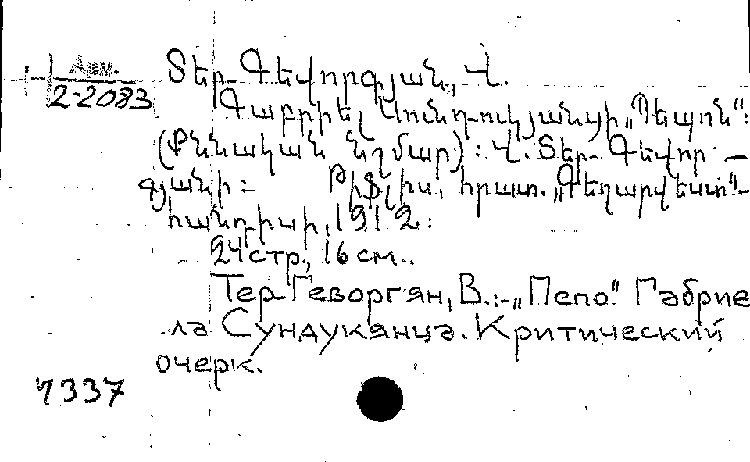 Арм.
2-2083
Տեր-Գևորգյան, Վ.
Գաբրիել Սունդուկյանցի „Պեպոն“:
(Քննական նշմար): Վ. Տեր-Գևոր-
գյանի: Թիֆլիս, հրատ. „Գեղարվեստ“-
հանդիսի, 1912:
24 стр., 16 см..
Тер-Геворгян, В.:-„Пепо“. Габрие
ла Сундукянца. Критический
очерк.
7337